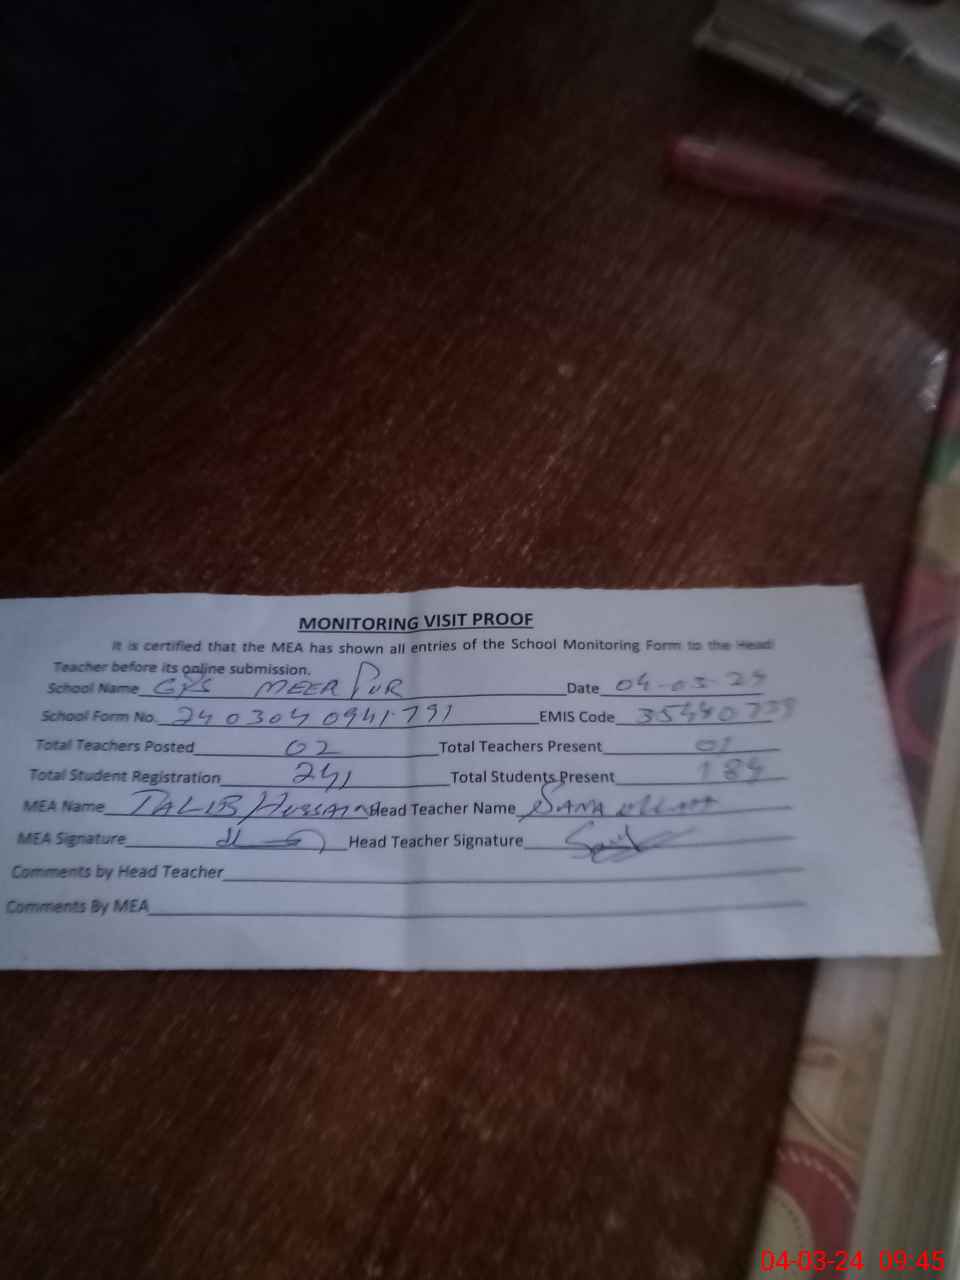 MONITORING VISIT PROOF
It is certified that the MEA has shown all entries of the School Monitoring Form to the Head
Teacher before its online submission.
School Name GPS MEER PUR Date 04-03-24
School Form No. 240304 0941791 EMIS Code
Total Teachers Posted 02 Total Teachers Present
Total Student Registration 241 Total Students Present 184
MEA Name TALIB HUSSAIN Head Teacher Name SANA ULLAH
MEA Signature Head Teacher Signature
Comments by Head Teacher
Comments By MEA
04-03-24 09:45